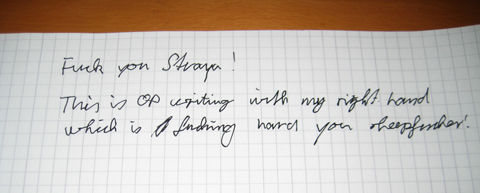 Fuck you Straya!
This is OP writing with my right hand
which is finding hard you sheepfucker!